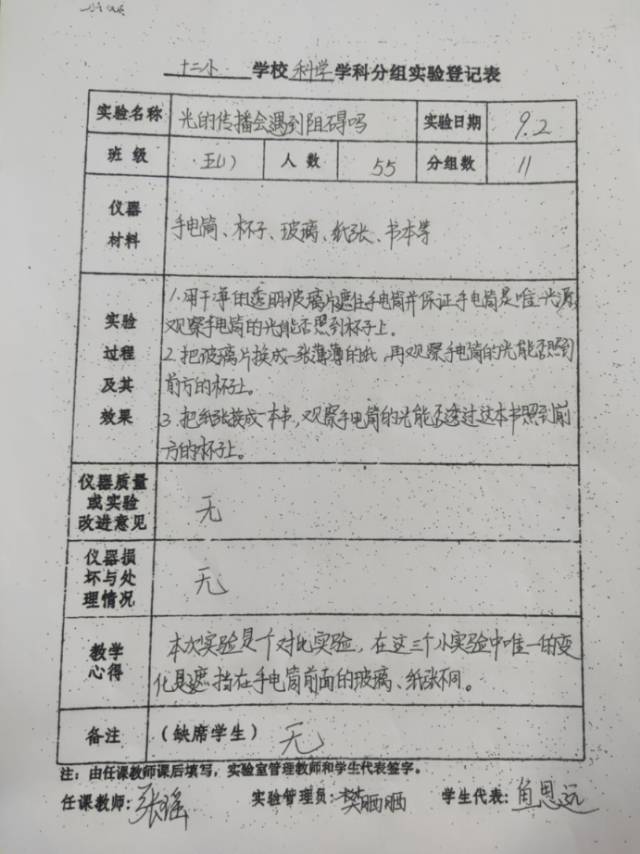 十二小 学校 科学 学科分组实验登记表
实验名称 光的传播会遇到阻碍吗 实验日期 9.2
班 级 五(1) 人 数 55 分组数 11
仪器
材料
手电筒、杯子、玻璃、纸张、书本等
实验
过程
及其
效果
1.用干净的透明玻璃片遮住手电筒并保证手电筒是唯一光源,
观察手电筒的光能否照到杯子上。
2.把玻璃片换成一张薄薄的纸,再观察手电筒的光能否照到
前方的杯子上。
3.把纸张换成一本书,观察手电筒的光能否透过这本书照到前
方的杯子上。
仪器质量
或实验
改进意见
无
仪器损
坏与处
理情况
无
教学
心得
本次实验是个对比实验,在这三个小实验中唯一的变
化是遮挡在手电筒前面的玻璃、纸张不同。
备注 (缺席学生) 无
注:由任课教师课后填写,实验室管理教师和学生代表签字。
任课教师:张瑶 实验管理员:樊晒晒 学生代表:肖思远